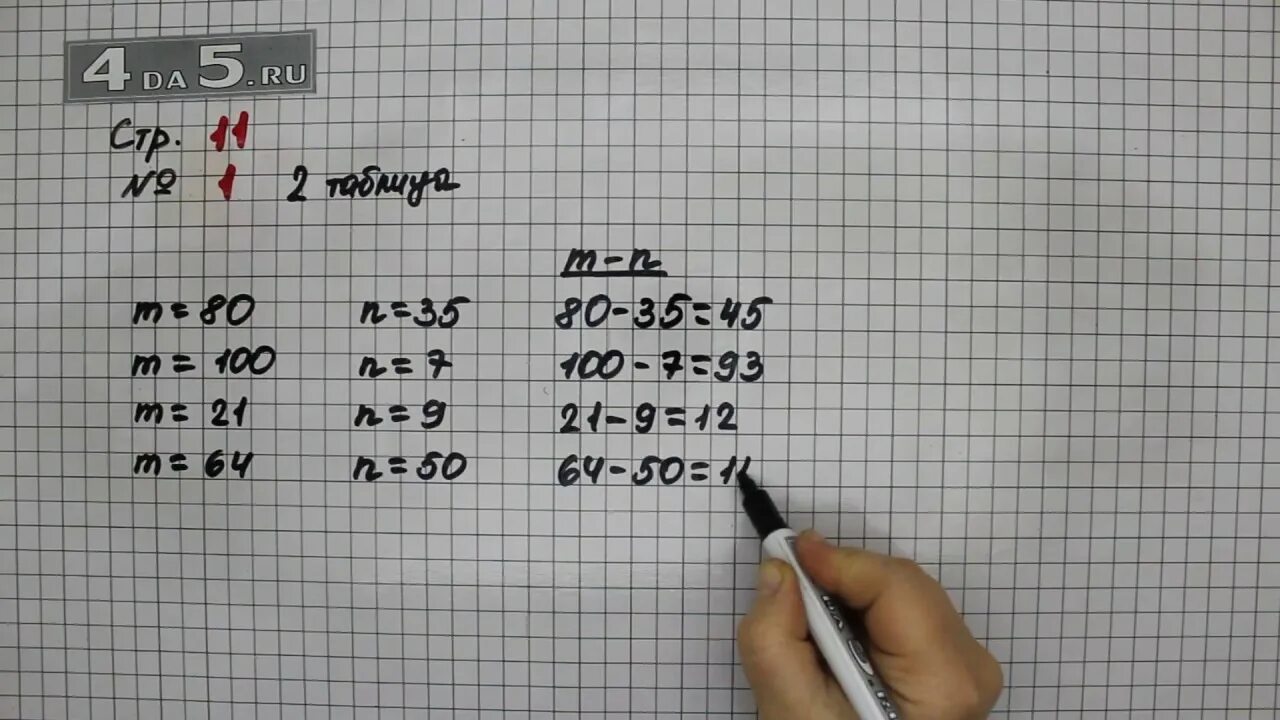 4DA5.RU
Стр. 11
№ 1 2 таблица
m-n
m=80 n=35 80-35=45
m=100 n=7 100-7=93
m=21 n=9 21-9=12
m=64 n=50 64-50=1